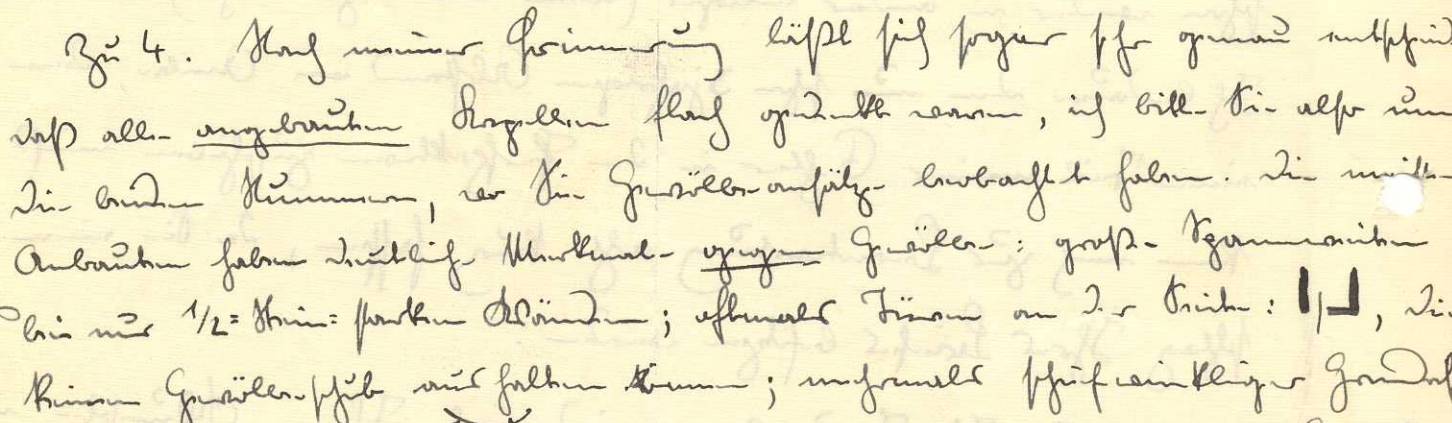 Zu 4. Nach meiner Erinnerung läßt sich sogar sehr genau entscheid
daß alle angebauten Kapellen flach gedeckt waren, ich bitte Sie also um
die beiden Nummern, wo Sie Gewölbeansätze beobachtet haben. Die meisten
Anbauten haben deutliche Merkmale gegen Gewölbe: große Spannweiten
bei nur 1/2=Stein= starken Wänden; oftmals Türen an der Seite: , die
keinen Gewölbeschub aushalten können; mehrmals schiefwinkliger Grundriß